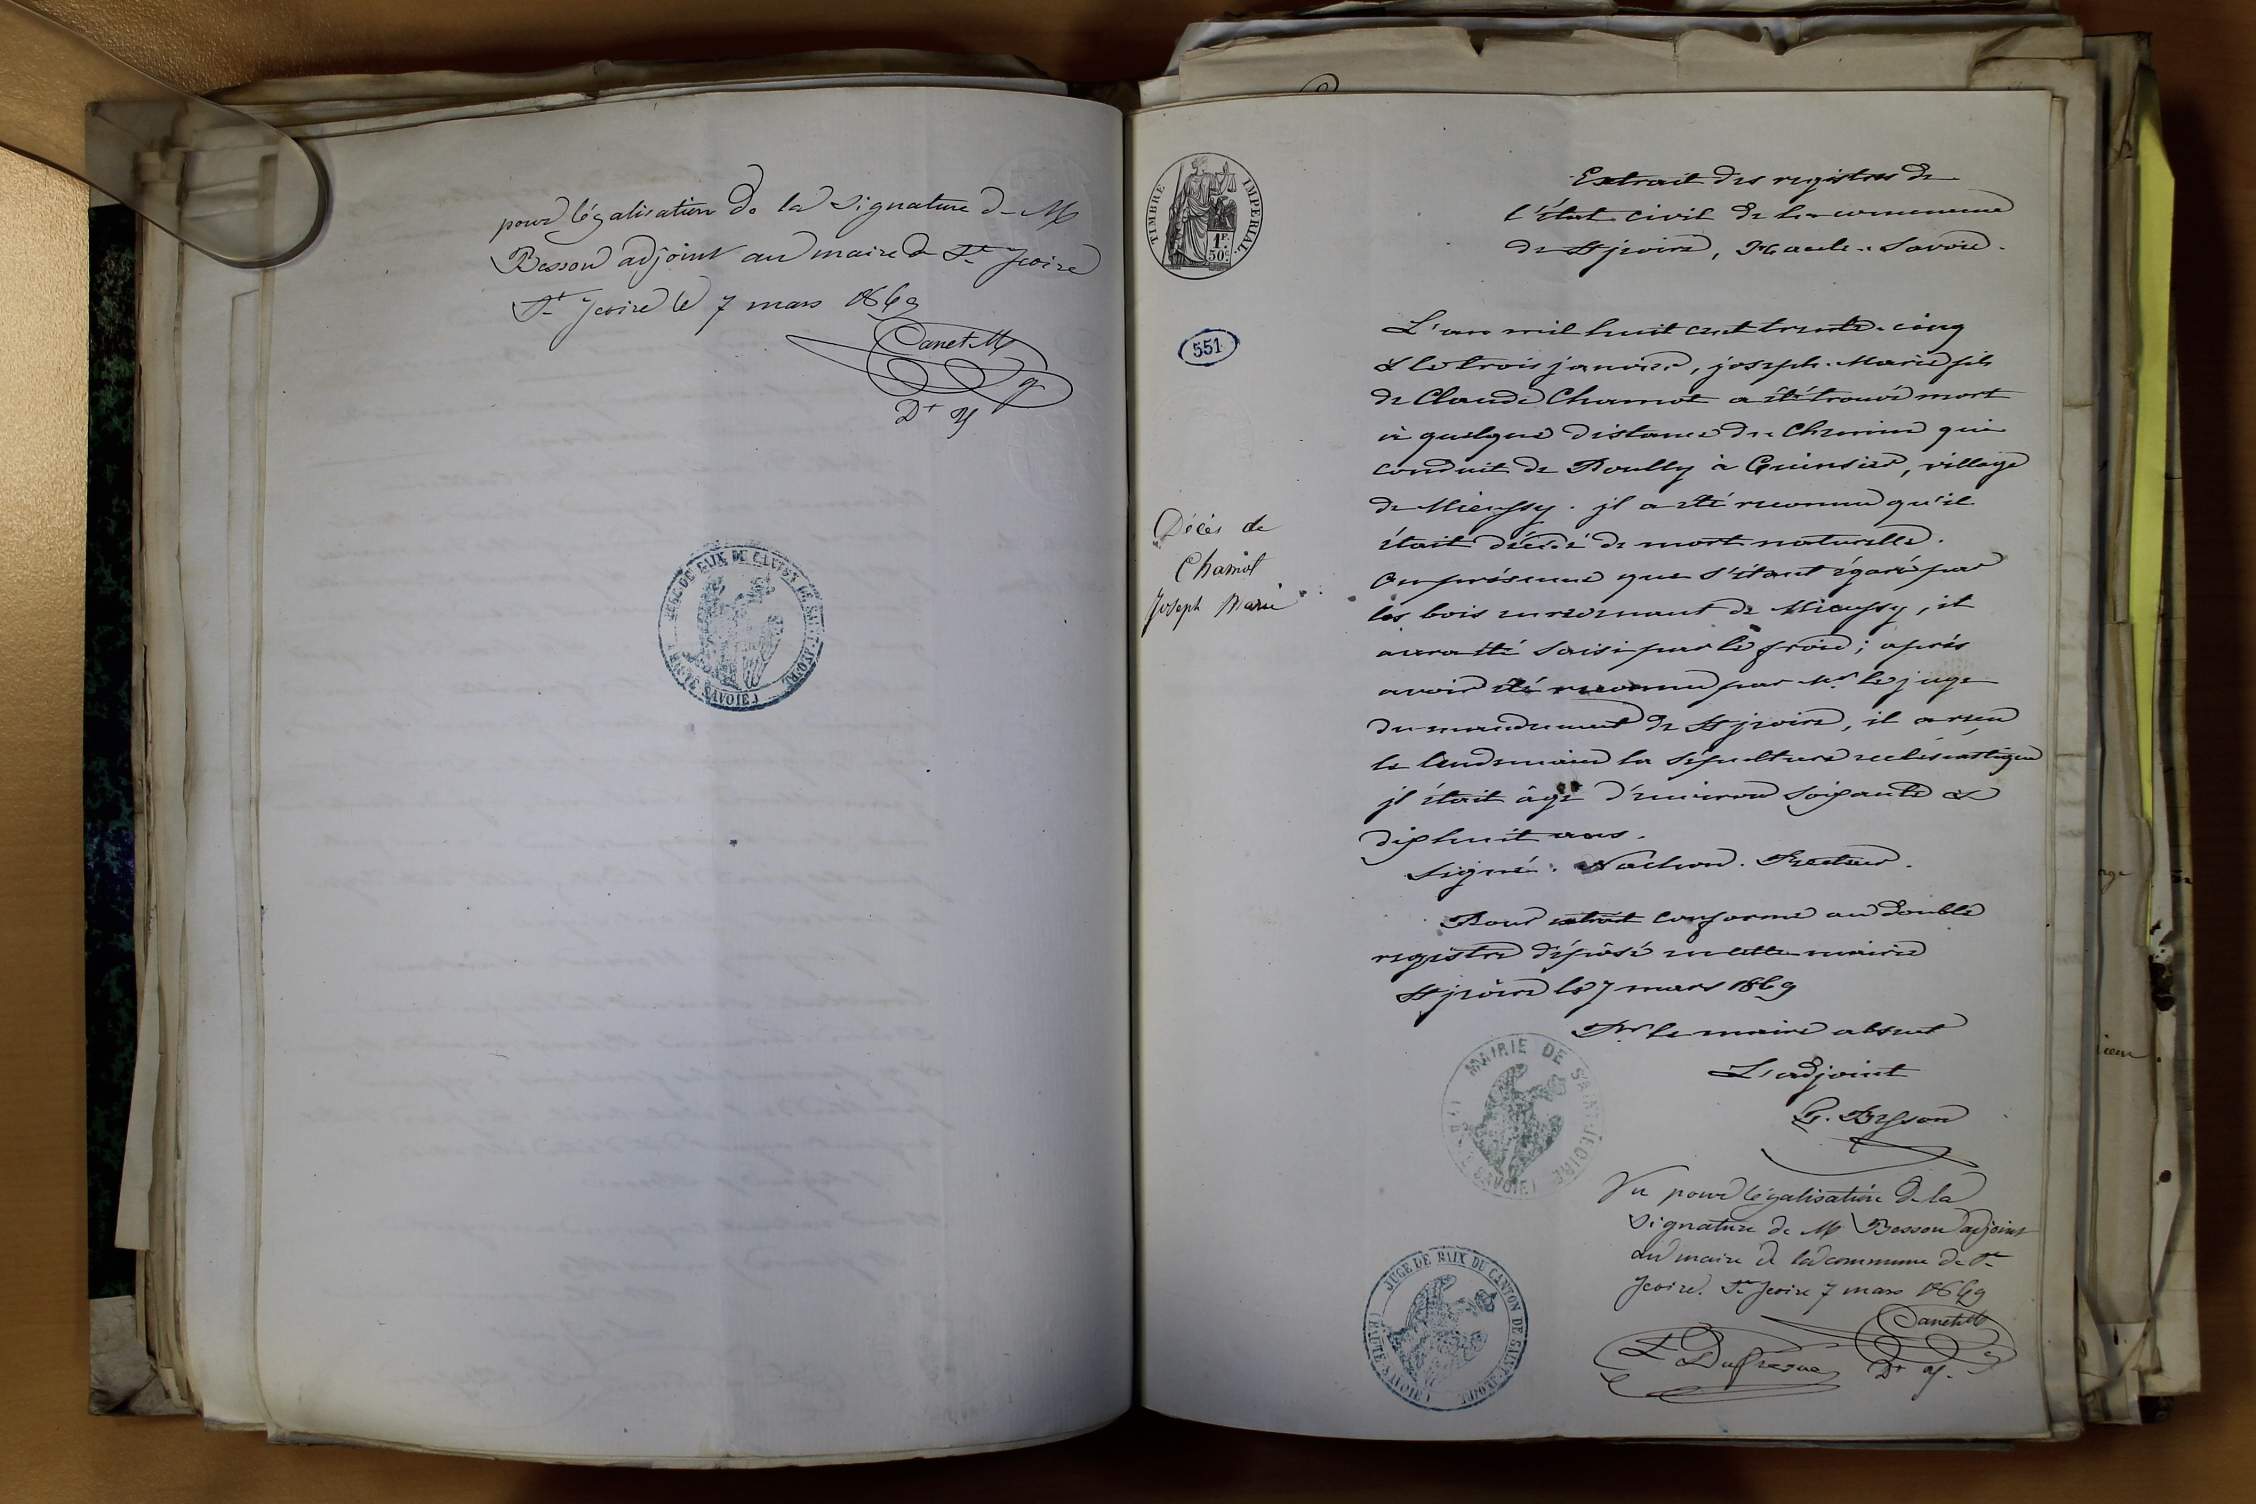 pour légalisation de la signature de M
Besson adjoint au maire de St Jeoire
St Jeoire le 7 mars 1869
Canet M
Dt
JUGE DE PAIX DU CANTON DE SAINT-JEOIRE
(HAUTE SAVOIE)
TIMBRE IMPERIAL
1F.
50c
551
Décès de
Chamot
Joseph Marie
Extrait des registres de
l'état civil de la commune
de St jeoire, Haute-Savoie.
L'an mil huit cent trente-cinq
& le trois janvier, joseph-Marie fils
de Claude Chamot a été trouvé mort
à quelque distance du Chemin qui
conduit de Pouilly à Quinsier, village
de Mieussy. jl a été reconnu qu'il
était décédé de mort naturelle.
On présume que s'étant égaré par
les bois en revenant de Mieussy, il
aura été saisi par le froid; après
avoir été reconnu par Mr. le juge
du mandement de St jeoire, il a reçu
le lendemain la sépulture ecclésiastique
jl était âgé d'environ soixante &
dixhuit ans.
Signé: Nachon. Recteur.
Pour extrait conforme au double
registre déposé en cette mairie
St jeoire le 7 mars 1869
Pr. le maire absent
L'adjoint
Besson
MAIRIE DE SAINT-JEOIRE
(HTE SAVOIE)
Vu pour légalisation de la
signature de M Besson adjoint
au maire de la commune de St
Jeoire. St Jeoire 7 mars 1869
Canet M
Dufresne
Dt
JUGE DE PAIX DU CANTON DE SAINT-JEOIRE
(HAUTE SAVOIE)